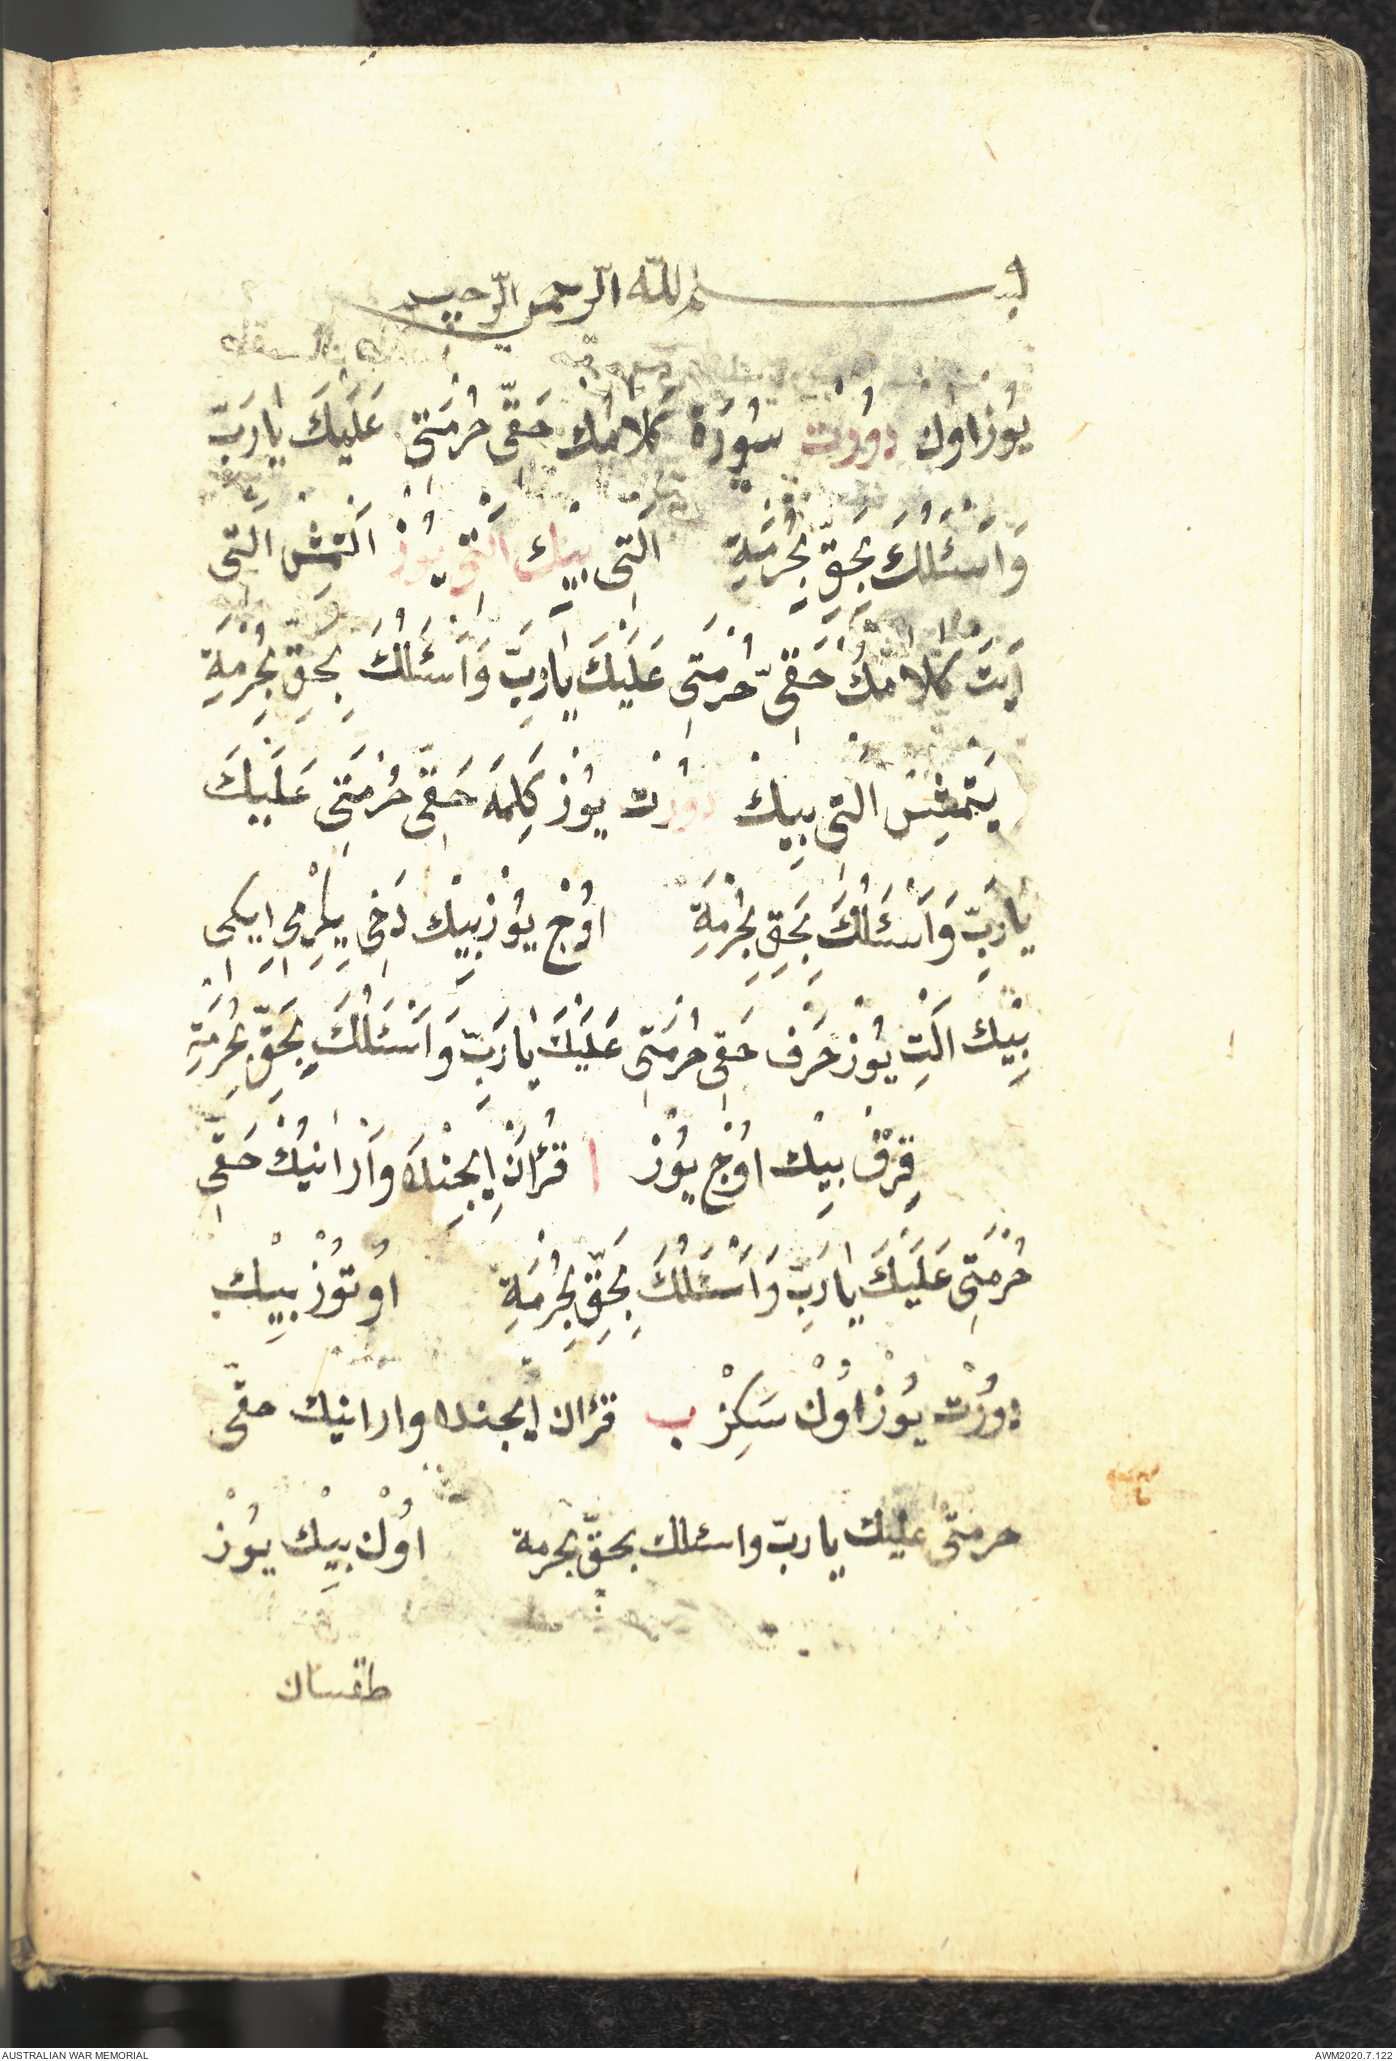 بسم الله الرحمن الرحيم
يُوز اون دورت سُورَة كَلامُك حَقّى حُرْمَتِى عَلَيكَ يارَبِّ
وَاَسْئَلُكَ بِحَقِّ بِحُرْمَةِ التى بيك التى يُوز التمش التى
اَيَتْ كَلامُكْ حَقِىّ حُرْمَتِى عَلَيْكَ يارَبِّ وَاَسْئَلُكَ بِحَقِّ بِحُرْمَةِ
يَتْمِشْ التى بِيك دورت يُوز كَلِمَه حَقّى حُرْمَتِى عَلَيكَ
يارَبِّ وَاَسْئَلُكَ بِحَقِّ بِحُرْمَةِ اوُج يوُز بِيك دَخِى يِكِرْمِى ايكى
بِيْك التِ يُوز حَرْف حَقِى حُرْمَتِى عَلَيْكَ يارَبِّ وَاَسْئَلُكَ بِحَقِّ بِحُرْمَةِ
قِرْق بِيْك اوُج يوُز ا قُرْاَنْ اِيچِنْدَه وَارانيكْ حَقِّى
حُرْمَتِى عَلَيْكَ يارَبِّ وَاَسْئَلُكَ بِحَقِّ بِحُرْمَةِ اوُتوُزْ بِيْك
دوُرْت يوُزْ اوُنْ سَكِزْ ب قرئان ايچنده وارانيك حقّى
حرمتى عليك ياربّ واسئلك بحقّ بحرمة اوُنْ بِيْك يوُزْ
طقسان